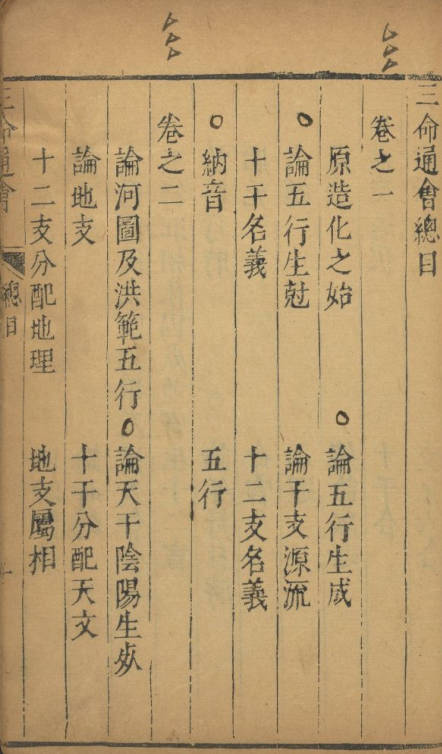 三命通會總目
卷之一
原造化之始 論五行生成
論五行生尅 論干支源流
十干名義 十二支名義
納音 五行
卷之二
論河圖及洪範五行 論天干陰陽生死
論地支 十干分配天文
十二支分配地理 地支屬相
三命通會 總目